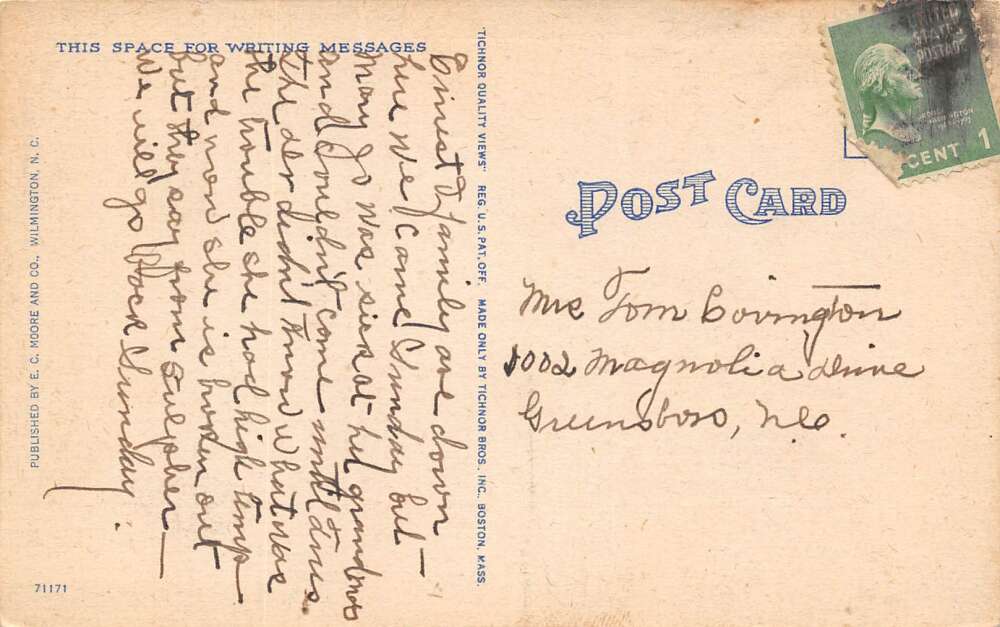 THIS SPACE FOR WRITING MESSAGES
Ernest & family are down
here We came Sunday but
Mary Jo was sick at her grandmas
and couldn't come until Tues.
The dr didn't know what was
the trouble she had high temp
and now she is broken out
but they say from sulpher
We will go back Sunday.
PUBLISHED BY E. C. MOORE AND CO., WILMINGTON, N. C.
71171
"TICHNOR QUALITY VIEWS" REG. U. S. PAT. OFF. MADE ONLY BY TICHNOR BROS. INC., BOSTON, MASS.
POST CARD
Mrs Tom Covington
1002 Magnolia Drive
Greensboro, N.C.
UNITED
STATES
POSTAGE
WASHINGTON
CENT 1